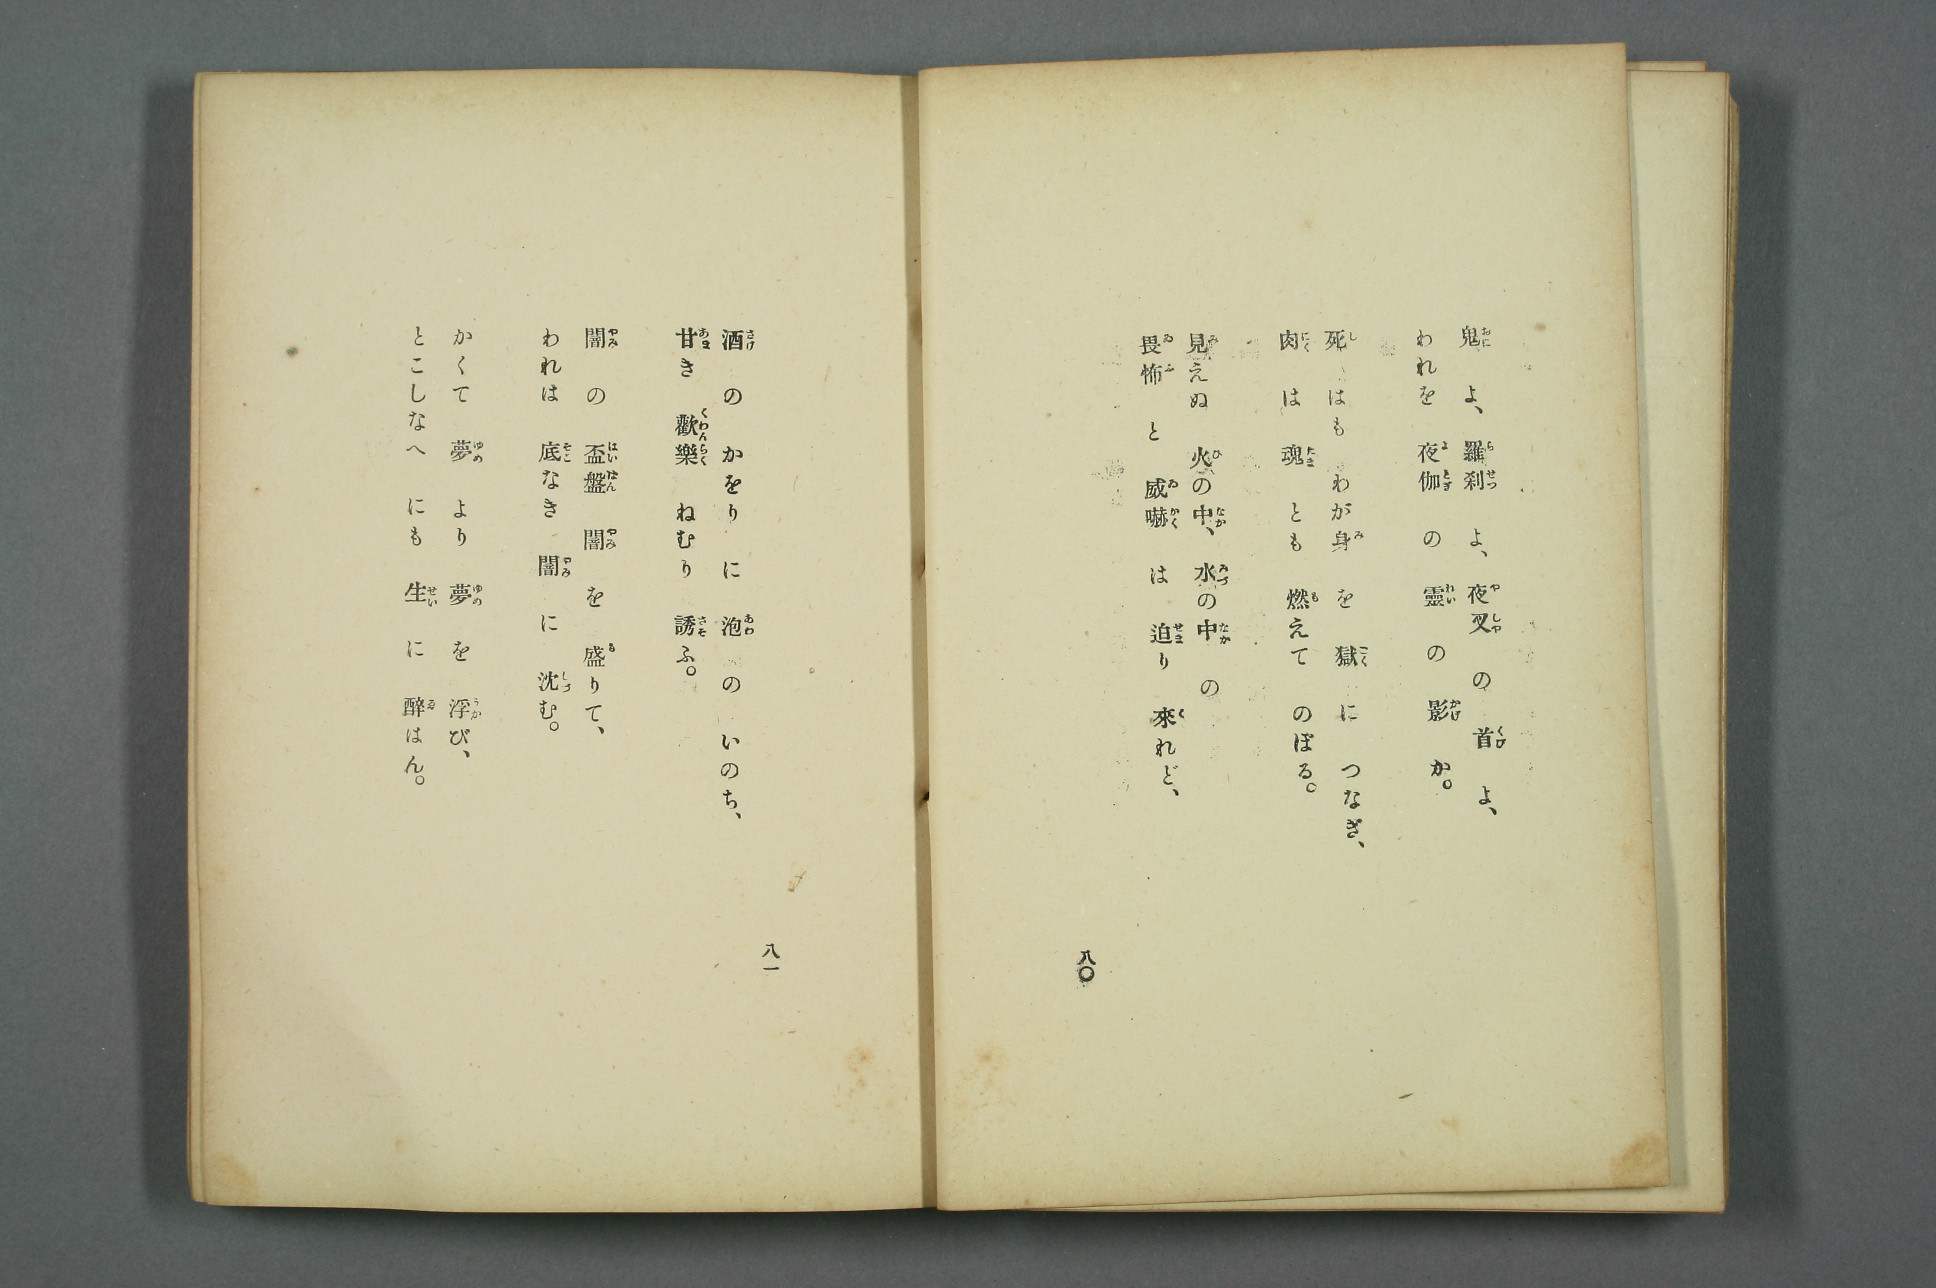 鬼よ、羅刹よ、夜叉の首よ、
われを夜伽の靈の影か。
死はもわが身を獄につなぎ、
肉は魂とも燃えてのぼる。
見えぬ火の中、水の中の
畏怖と威嚇は迫り來れど、
八〇
酒のかをりに泡のいのち、
甘き歡樂ねむり誘ふ。
闇の盃盤闇を盛りて、
われは底なき闇に沈む。
かくて夢より夢を浮び、
とこしなへにも生に醉はん。
八一